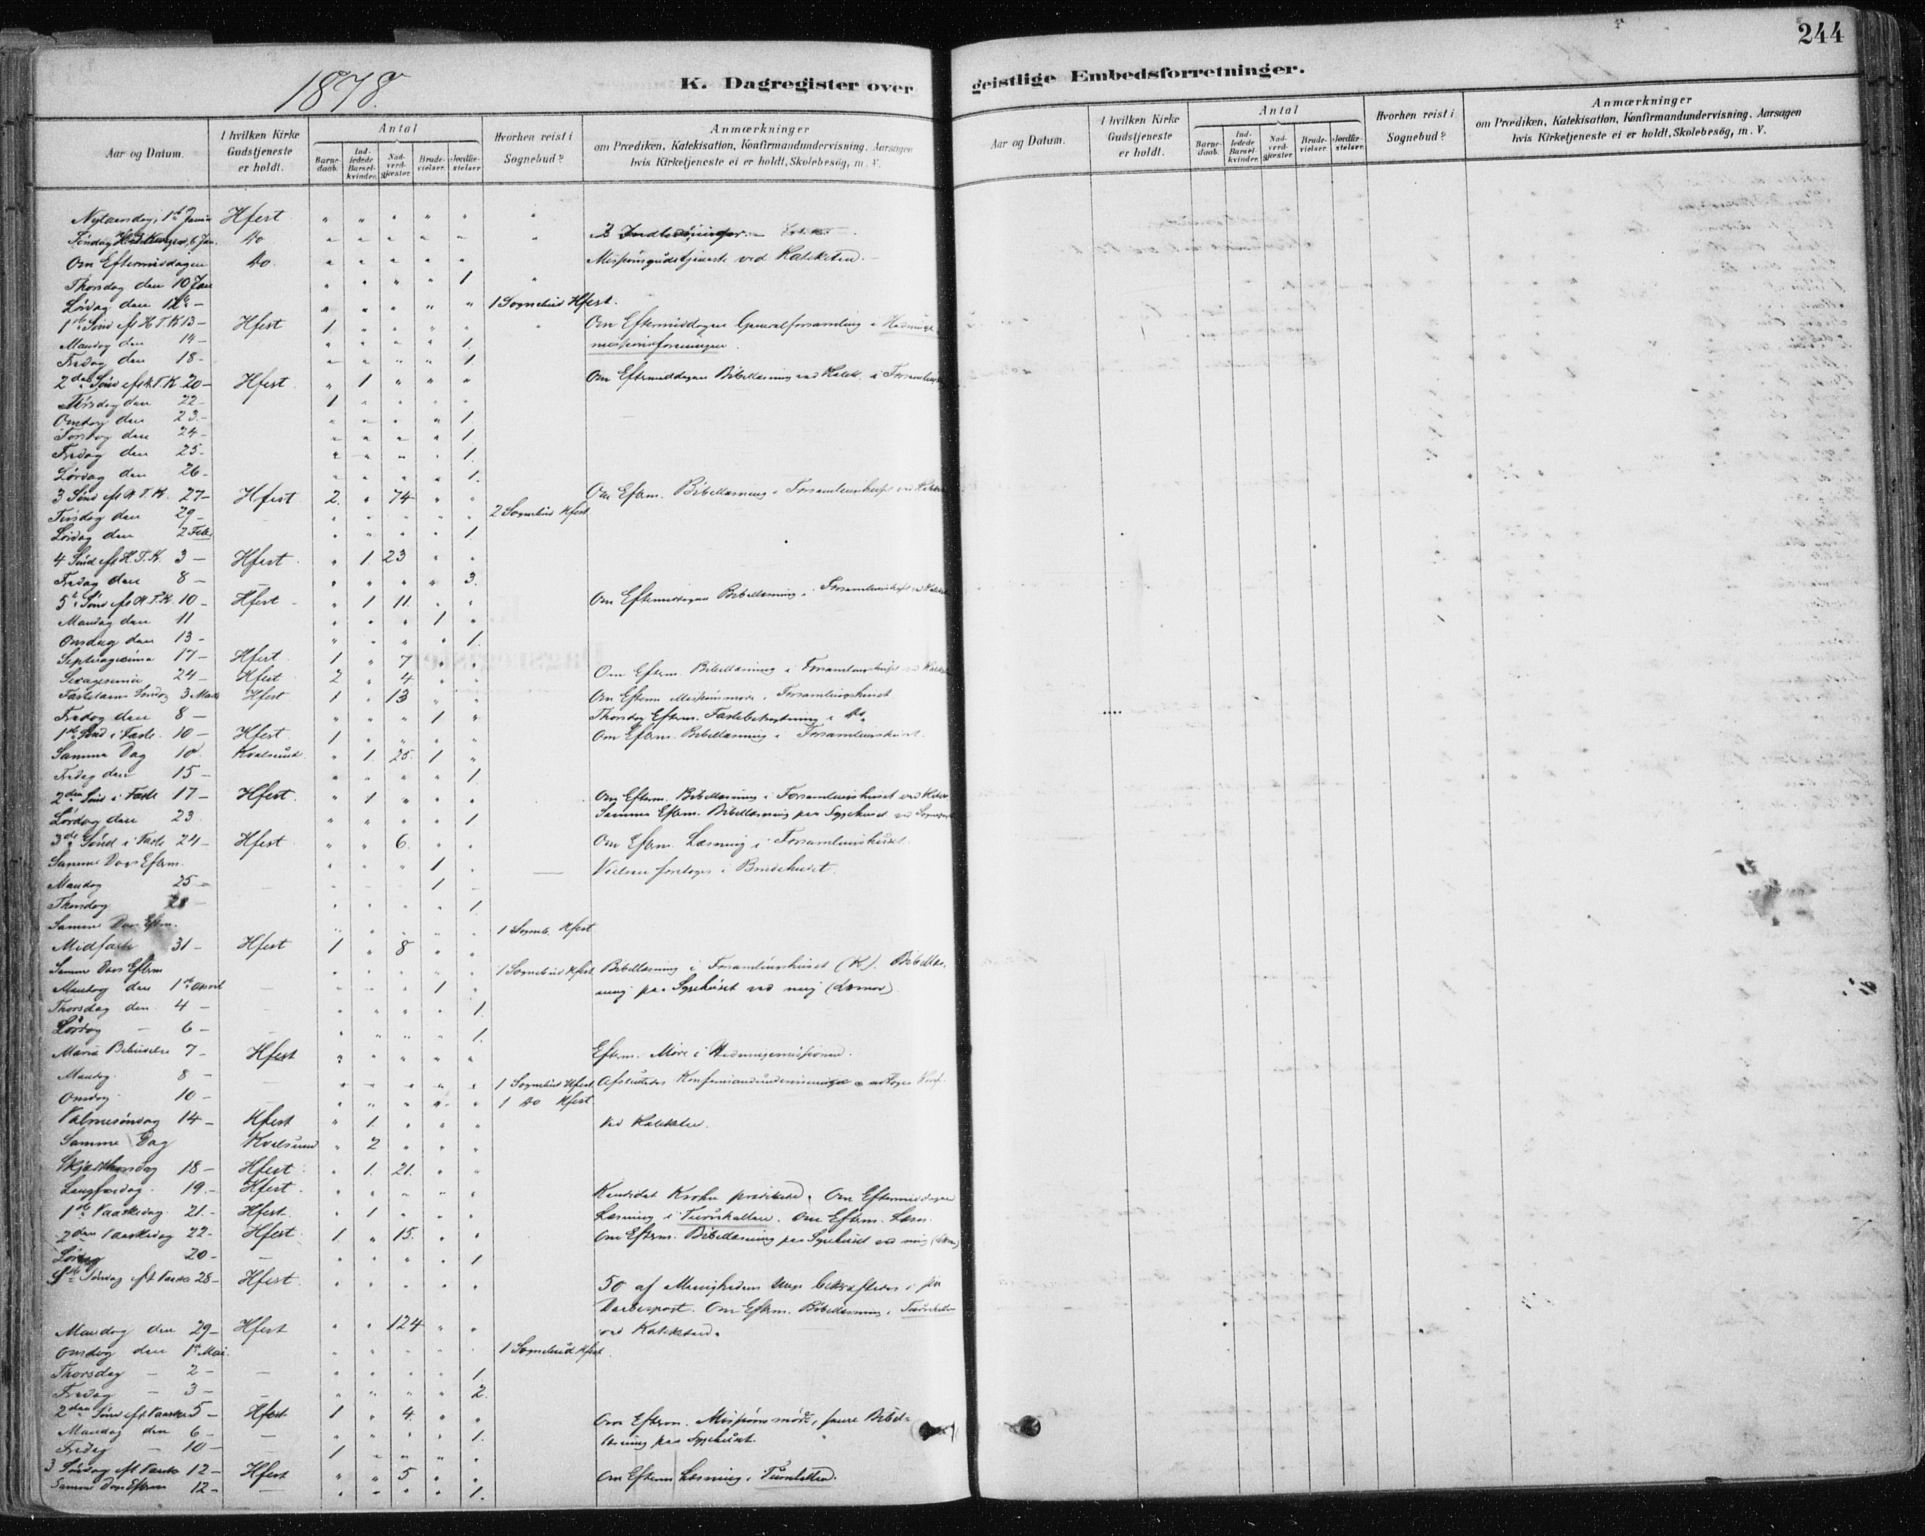 244
1878.
K. Dagregister over geistlige Embedsforretninger.
Aar og Datum. | I hvilken Kirke Gudstjeneste er holdt. | Antal | Barnedaab. | Indledede Barselkvinder. | Nadverdgjester. | Brudevielser. | Jordfæstelser. | Hvorhen reist i Sognebud? | Anmærkninger om Prædiken, Katekisation, Konfirmandundervisning. Aarsagen hvis Kirketjeneste ei er holdt, Skolebesøg, m. V.
Aar og Datum. | I hvilken Kirke Gudstjeneste er holdt. | Antal | Barnedaab. | Indledede Barselkvinder. | Nadverdgjester. | Brudevielser. | Jordfæstelser. | Hvorhen reist i Sognebud? | Anmærkninger om Prædiken, Katekisation, Konfirmandundervisning. Aarsagen hvis Kirketjeneste ei er holdt, Skolebesøg, m. V.
Nytaarsdag, 1ste Januar Hfest " " " " " "
Søndag H. 3 Konger, 6 Jan. do " " " " " "
Om Eftermiddagen do. " " " " " Missionsgudstjeneste ved Kateketen.
Thorsdag den 10 Jan " " " " 1 "
Lørdag den 12 - " " " " " 1 Sognebud Hfest.
1ste Sønd eft H.T.K 13 - Hfest 1 " " " " " Om Eftermiddagen Generalforsamling i Hedninge-
Mandag den 14 - " " " " 1. missionsforeningen.
Fredag den 18 - " " " " 1
2den Sønd eft H.T.K. 20 - Hfest. " 1 " " " Om Eftermiddagen Bibellæsning ved Katek. i
Tirsdag den 22 - 1 " " " "
Onsdag den 23. - " " " " 1
Torsdag den 24 - " " " " 1.
Fredag den 25 - " " " " 1.
Lørdag den 26 - " " " " 1.
3 Sønd eft H.T.K. 27 - Hfest 2. " 74 " " Om Efterm. Bibellæsning i
Tirsdag den 29 - " " " " " 2 Sognebud Hfest
Lørdag den 2 Feb. " " " " 1
4 Sønd eft H.T.K. 3 - Hfest. " 1 23 " "
Fredag den 8 - " " " " 3.
5te Sønd eft H.T.K. 10 - Hfest - " 1 11. " " Om Eftermiddagen Bibellæsning i
Mandag den 11 " " " 1 "
Onsdag den 13 - " " " " 1.
Septuagesima 17 - Hfest. 1 " 7 " "
Sexagesima 24 - Hfest 2 " 4 " " Om Efterm. Bibellæsning i
Fastelavns Søndag 3 Marts Hfest 1 " 13 " " Om Efterm Missionsmøde i Forsamlingshuset
Fredag den 8 - " " " 1 " Thorsdag Efterm. Fastebetragtning i do.
1ste Sønd i Faste. 10 - Hfest. 1 " " " " Om Efterm. Bibellæsning i Forsamlingshuset.
Samme Dag 10 Kvalsund. " 1. 25. 1 "
Fredag den 15 - " " " " 1
2den Sønd i Faste 17 - Hfest. " 1 " " " Om Efterm. Bibellæsning i Forsamlingshuset ved
Lørdag den 23. " " " " 1 Samme Efterm. Bibellæsning paa Sygehuset ved
3de Sønd i Faste 24 - Hfest " " 6. " " Om Efterm. Læsning i Forsamlingshuset.
Samme Dags Efterm. " " " 1 " Vielsen foretoges i Brudehuset.
Mandag 25 - " " " 1 "
Thorsdag 28 - " " " " 1.
Samme Dags Efterm. " " " " " 1 Sogneb. Hfest
Midfaste 31 - Hfest 1 " 8 " "
Samme Dags Efterm " " " " " 1 Sognebud Hfest. Bibellæsning i Forsamlingshuset (K). Bibellæs-
Mandag den 1ste April " " " 1 " ning paa Sygehuset ved mig
Thorsdag den 4 - " " " " 1.
Lørdag - 6 - " " " " 1.
Maria Bebudelse 7 - Hfest " " " " " Efterm. Møde i Hedningemissionen.
Mandag. 8 - " " " " " 1 Sognebud Hfest.
Onsdag. 10 - " " " " " 1 do Hfest
Palmesøndag 14 - Hfest " 1. " " " ved Kateketen.
Samme Dag Kvalsund " 2 " " "
Skjærthorsdag 18 - Hfest. " 1. 21. " "
Langfredag. 19. - Hfest. " " " " " Kandidat Krohn prædikede. Om Eftermiddagen
1ste Paaskedag. 21. - Hfest. " 1 " " " Læsning i Om Efterm.
2den Paaskedag 22 - Hfest. 1 " 15. " " Om Efterm. Bibellæsning paa Sygehuset ved mig
Lørdag 20 - " " " " 1
1ste Søndag eft Paaske 28 - Hfest. " " " " " 50 af Menighedens Unge bekræftedes i sin
Daabespagt. Om Efterm. Bibellæsning i
Mandag den 29 - Hfest " " 124 " " ved Kateketen.
Onsdag den 1ste Mai. " " " " " 1 Sognebud Hfest.
Thorsdag - 2 - " " " " 1.
Fredag - 3 - " " " " 2.
2den Sønd eft Paaske 5 - Hfest 1 " 4. " " Om Efterm. Missionsmøde, senere Bibel-
Mandag den 6 - " " " " 1. læsning paa Sygehuset.
Fredag - 10 - 1 " " " "
3 Søndag eft Paaske 12 - Hfest " " 5 " " Om Efterm Læsning i
Samme Dags Efterm 12 - " " " " 1.